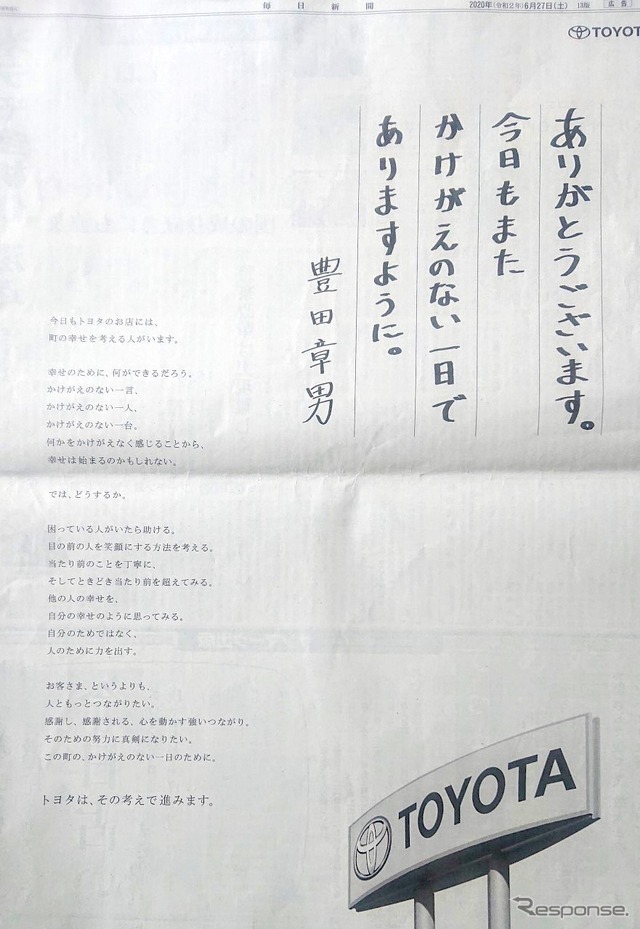 毎日新聞
2020年(令和2年)6月27日(土)
13版
広告
TOYOT
ありがとうございます。
今日もまた
かけがえのない一日で
ありますように。
豊田章男
今日もトヨタのお店には、
町の幸せを考える人がいます。
幸せのために、何ができるだろう。
かけがえのない一言、
かけがえのない一人、
かけがえのない一台。
何かをかけがえなく感じることから、
幸せは始まるのかもしれない。
では、どうするか。
困っている人がいたら助ける。
目の前の人を笑顔にする方法を考える。
当たり前のことを丁寧に、
そしてときどき当たり前を超えてみる。
他の人の幸せを、
自分の幸せのように思ってみる。
自分のためではなく、
人のために力を出す。
お客さま、というよりも、
人ともっとつながりたい。
感謝し、感謝される、心を動かす強いつながり。
そのための努力に真剣になりたい。
この町の、かけがえのない一日のために。
トヨタは、その考えで進みます。
TOYOTA
Response.